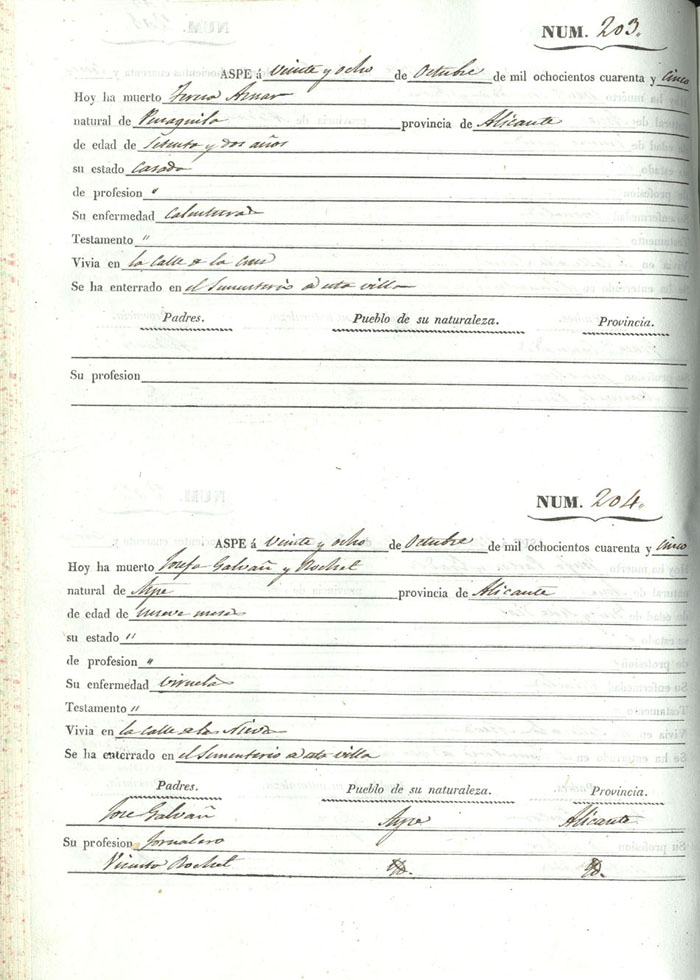 NUM. 203.
ASPE á veinte y ocho de Octubre de mil ochocientos cuarenta y cinco
Hoy ha muerto Teresa Aznar
natural de Penaguila provincia de Alicante
de edad de Setenta y dos años
su estado casada
de profesion "
Su enfermedad calentura
Testamento "
Vivia en la calle de la Cruz
Se ha enterrado en el Sementerio de esta villa
Padres. Pueblo de su naturaleza. Provincia.
Su profesion
NUM. 204.
ASPE á veinte y ocho de Octubre de mil ochocientos cuarenta y cinco
Hoy ha muerto Josefa Galvañ y Rochel
natural de Aspe provincia de Alicante
de edad de nueve meses
su estado "
de profesion "
Su enfermedad viruela
Testamento "
Vivia en la calle de las Nieves
Se ha enterrado en el Sementerio de esta villa
Padres. Pueblo de su naturaleza. Provincia.
Jose Galvañ Aspe Alicante
Su profesion Jornalero
Rochel Yd. Yd.